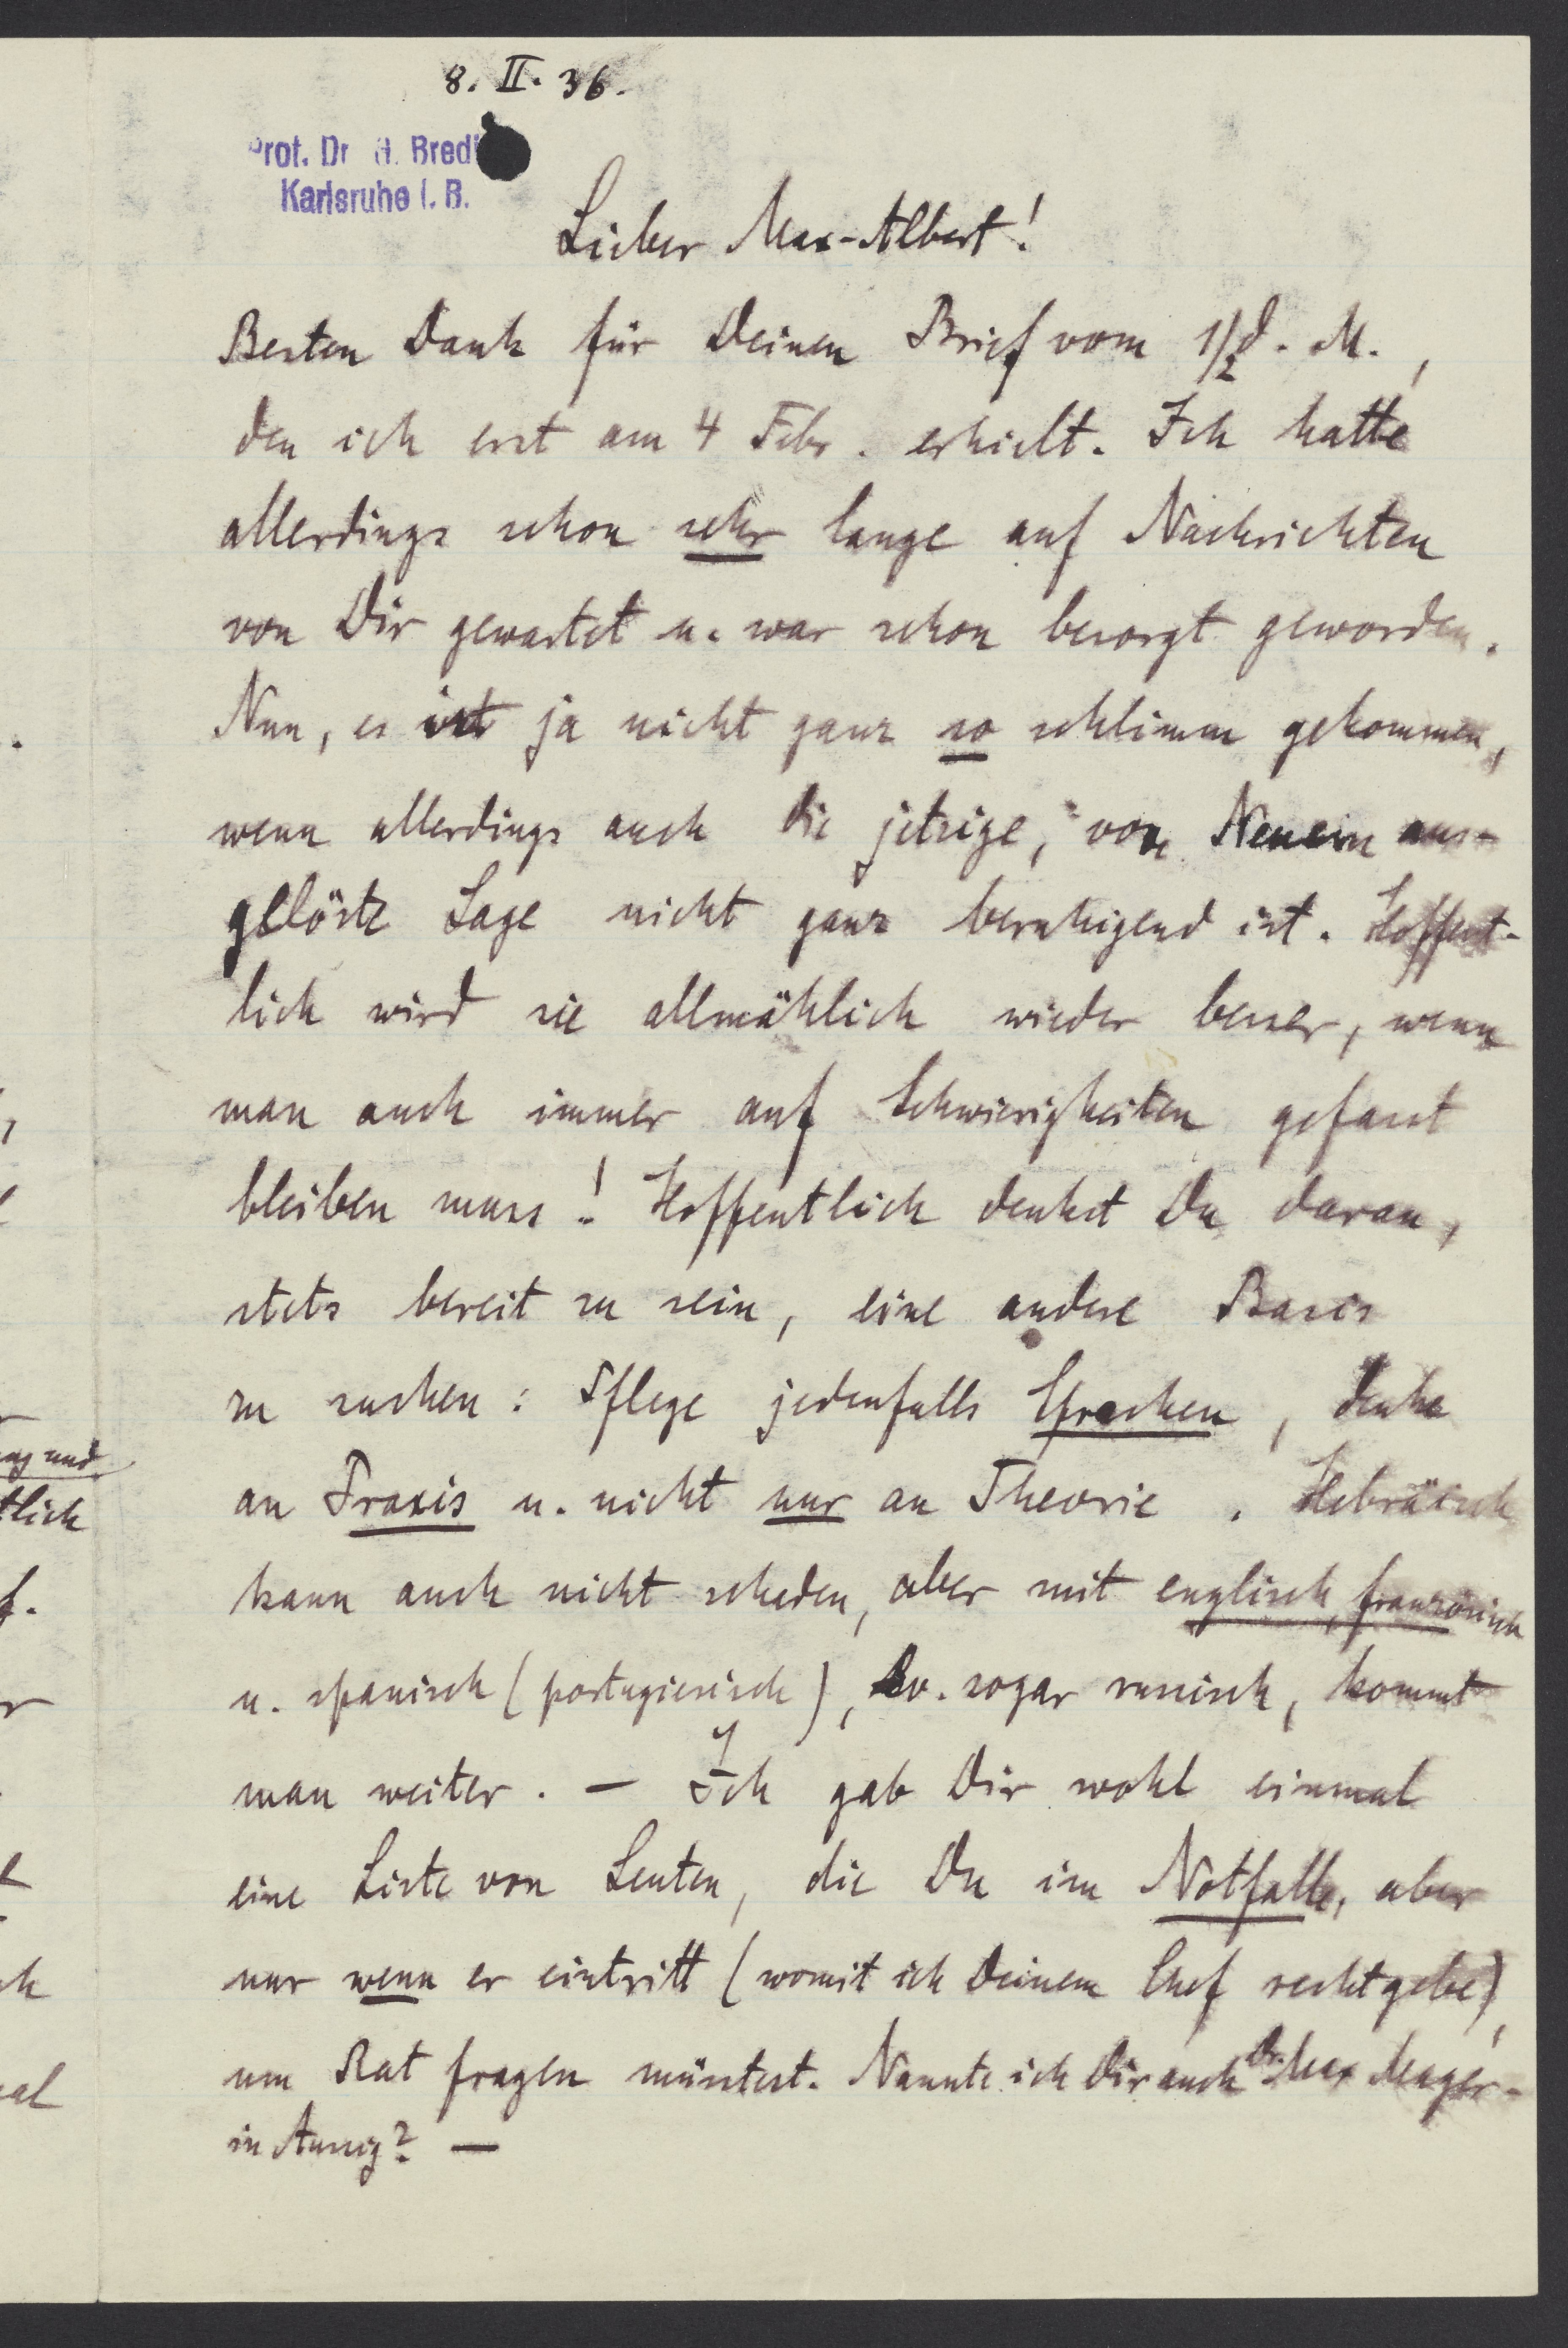 8. II. 36.
Prof. Dr. H. Bredi
Karlsruhe i. B.
Lieber Max-Albert!
Besten Dank für Deinen Brief vom 1/2 d. M.,
den ich erst am 4 Febr. erhielt. Ich hatte
allerdings schon sehr lange auf Nachrichten
von Dir gewartet u. war schon besorgt geworden.
Nun, es ist ja nicht ganz so schlimm gekommen,
wenn allerdings auch die jetzige, von Neuem aus-
gelöste Lage nicht ganz beruhigend ist. Hoffent-
lich wird sie allmählich wieder besser, wenn
man auch immer auf Schwierigkeiten gefasst
bleiben muss! Hoffentlich denkst Du daran,
stets bereit zu sein, eine andere Basis
zu suchen: Pflege jedenfalls Sprachen, denke
an Praxis u. nicht nur an Theorie. Hebräisch
kann auch nicht schaden, aber mit englisch, französisch
u. spanisch (portugiesisch), ev. sogar russisch, kommt
man weiter. — Ich gab Dir wohl einmal
eine Liste von Leuten, die Du im Notfalle, aber
nur wenn er eintritt (womit ich Deinem Chef recht gebe),
um Rat fragen müsstest. Nannte ich Dir auch Dr. Max Mayer
in Aussig? —
ng und
tlich
f.
r
ch
al